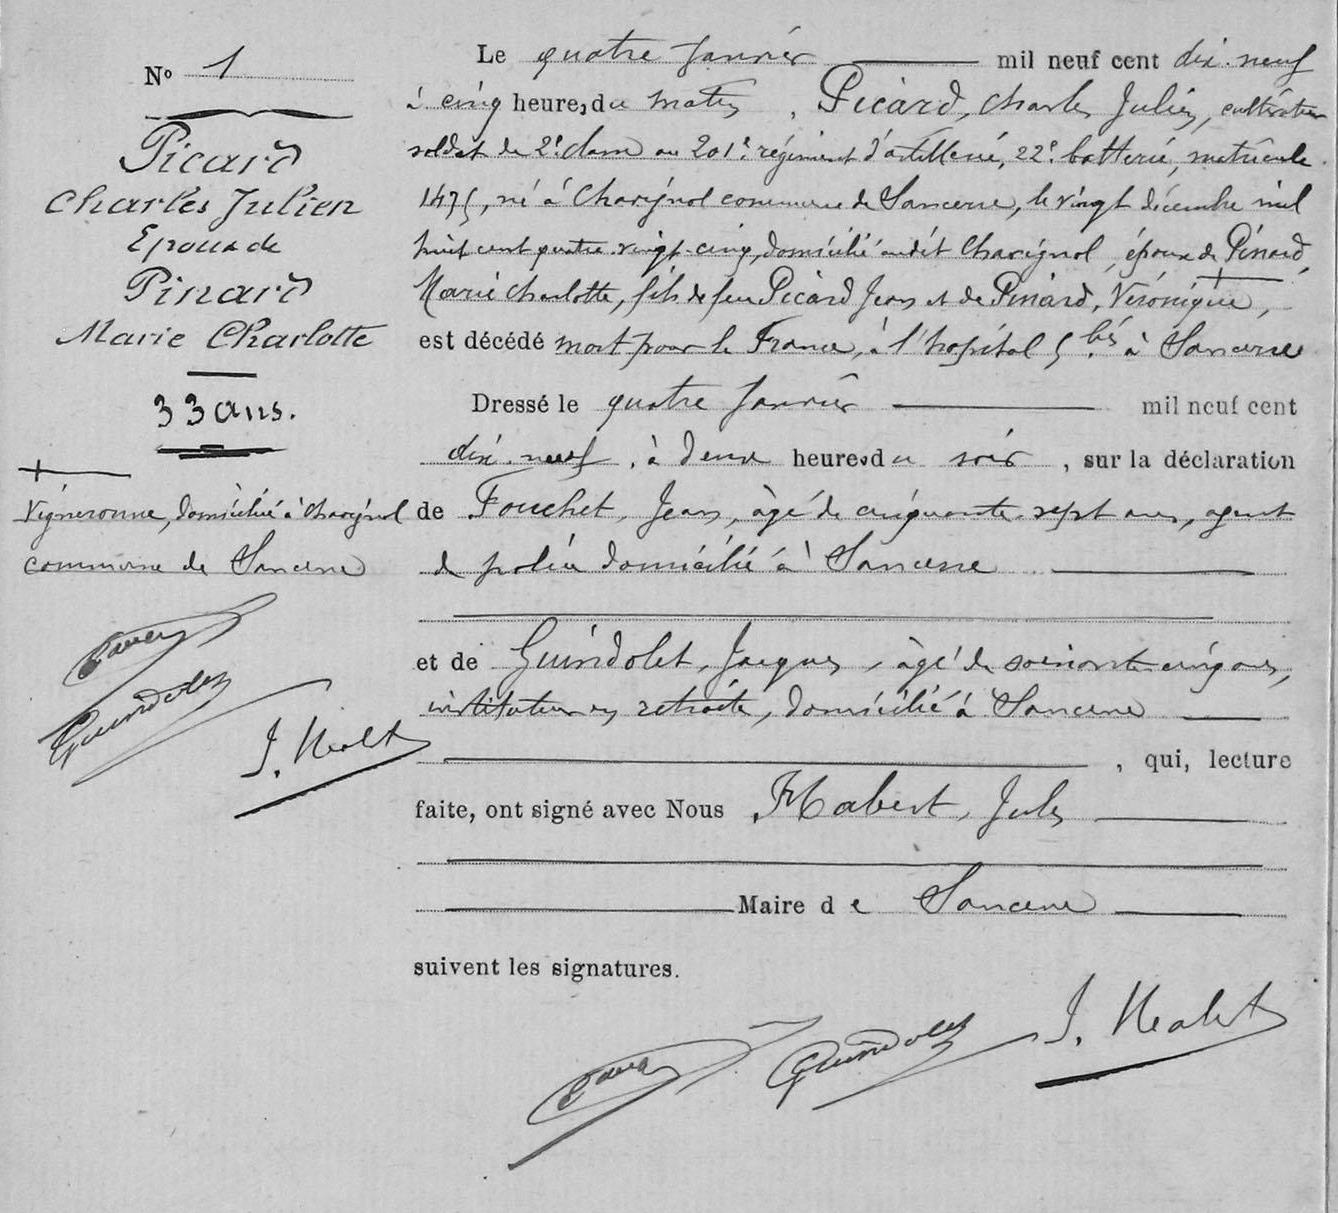 N° 1
Picard
Charles Julien
Epoux de
Pinard
Marie Charlotte
33 ans.
Vigneronne, domiciliée à Chavignol
commune de Sancerre
Guindolet
J. Habert
Le quatre Janvier mil neuf cent dix-neuf
à cinq heures du matin, Picard, Charles Julien, cultivateur
soldat de 2e classe au 201e régiment d'artillerie, 22e batterie, matricule
1475, né à Chavignol commune de Sancerre, le vingt décembre mil
huit cent quatre-vingt-cinq, domicilié audit Chavignol, époux de Pinard,
Marie Charlotte, fils de feu Picard Jean et de Pinard, Véronique,
est décédé mort pour la France, à l'hopital 5 bis à Sancerre
Dressé le quatre Janvier mil neuf cent
dix-neuf, à deux heures du soir, sur la déclaration
de Fouchet, Jean, âgé de cinquante-sept ans, agent
de police domicilié à Sancerre
et de Guindolet, Jacques, âgé de soixante cinq ans,
instituteur en retraite, domicilié à Sancerre
, qui, lecture
faite, ont signé avec Nous, Habert, Jules
Maire de Sancerre
suivent les signatures.
Guindolet
J. Habert